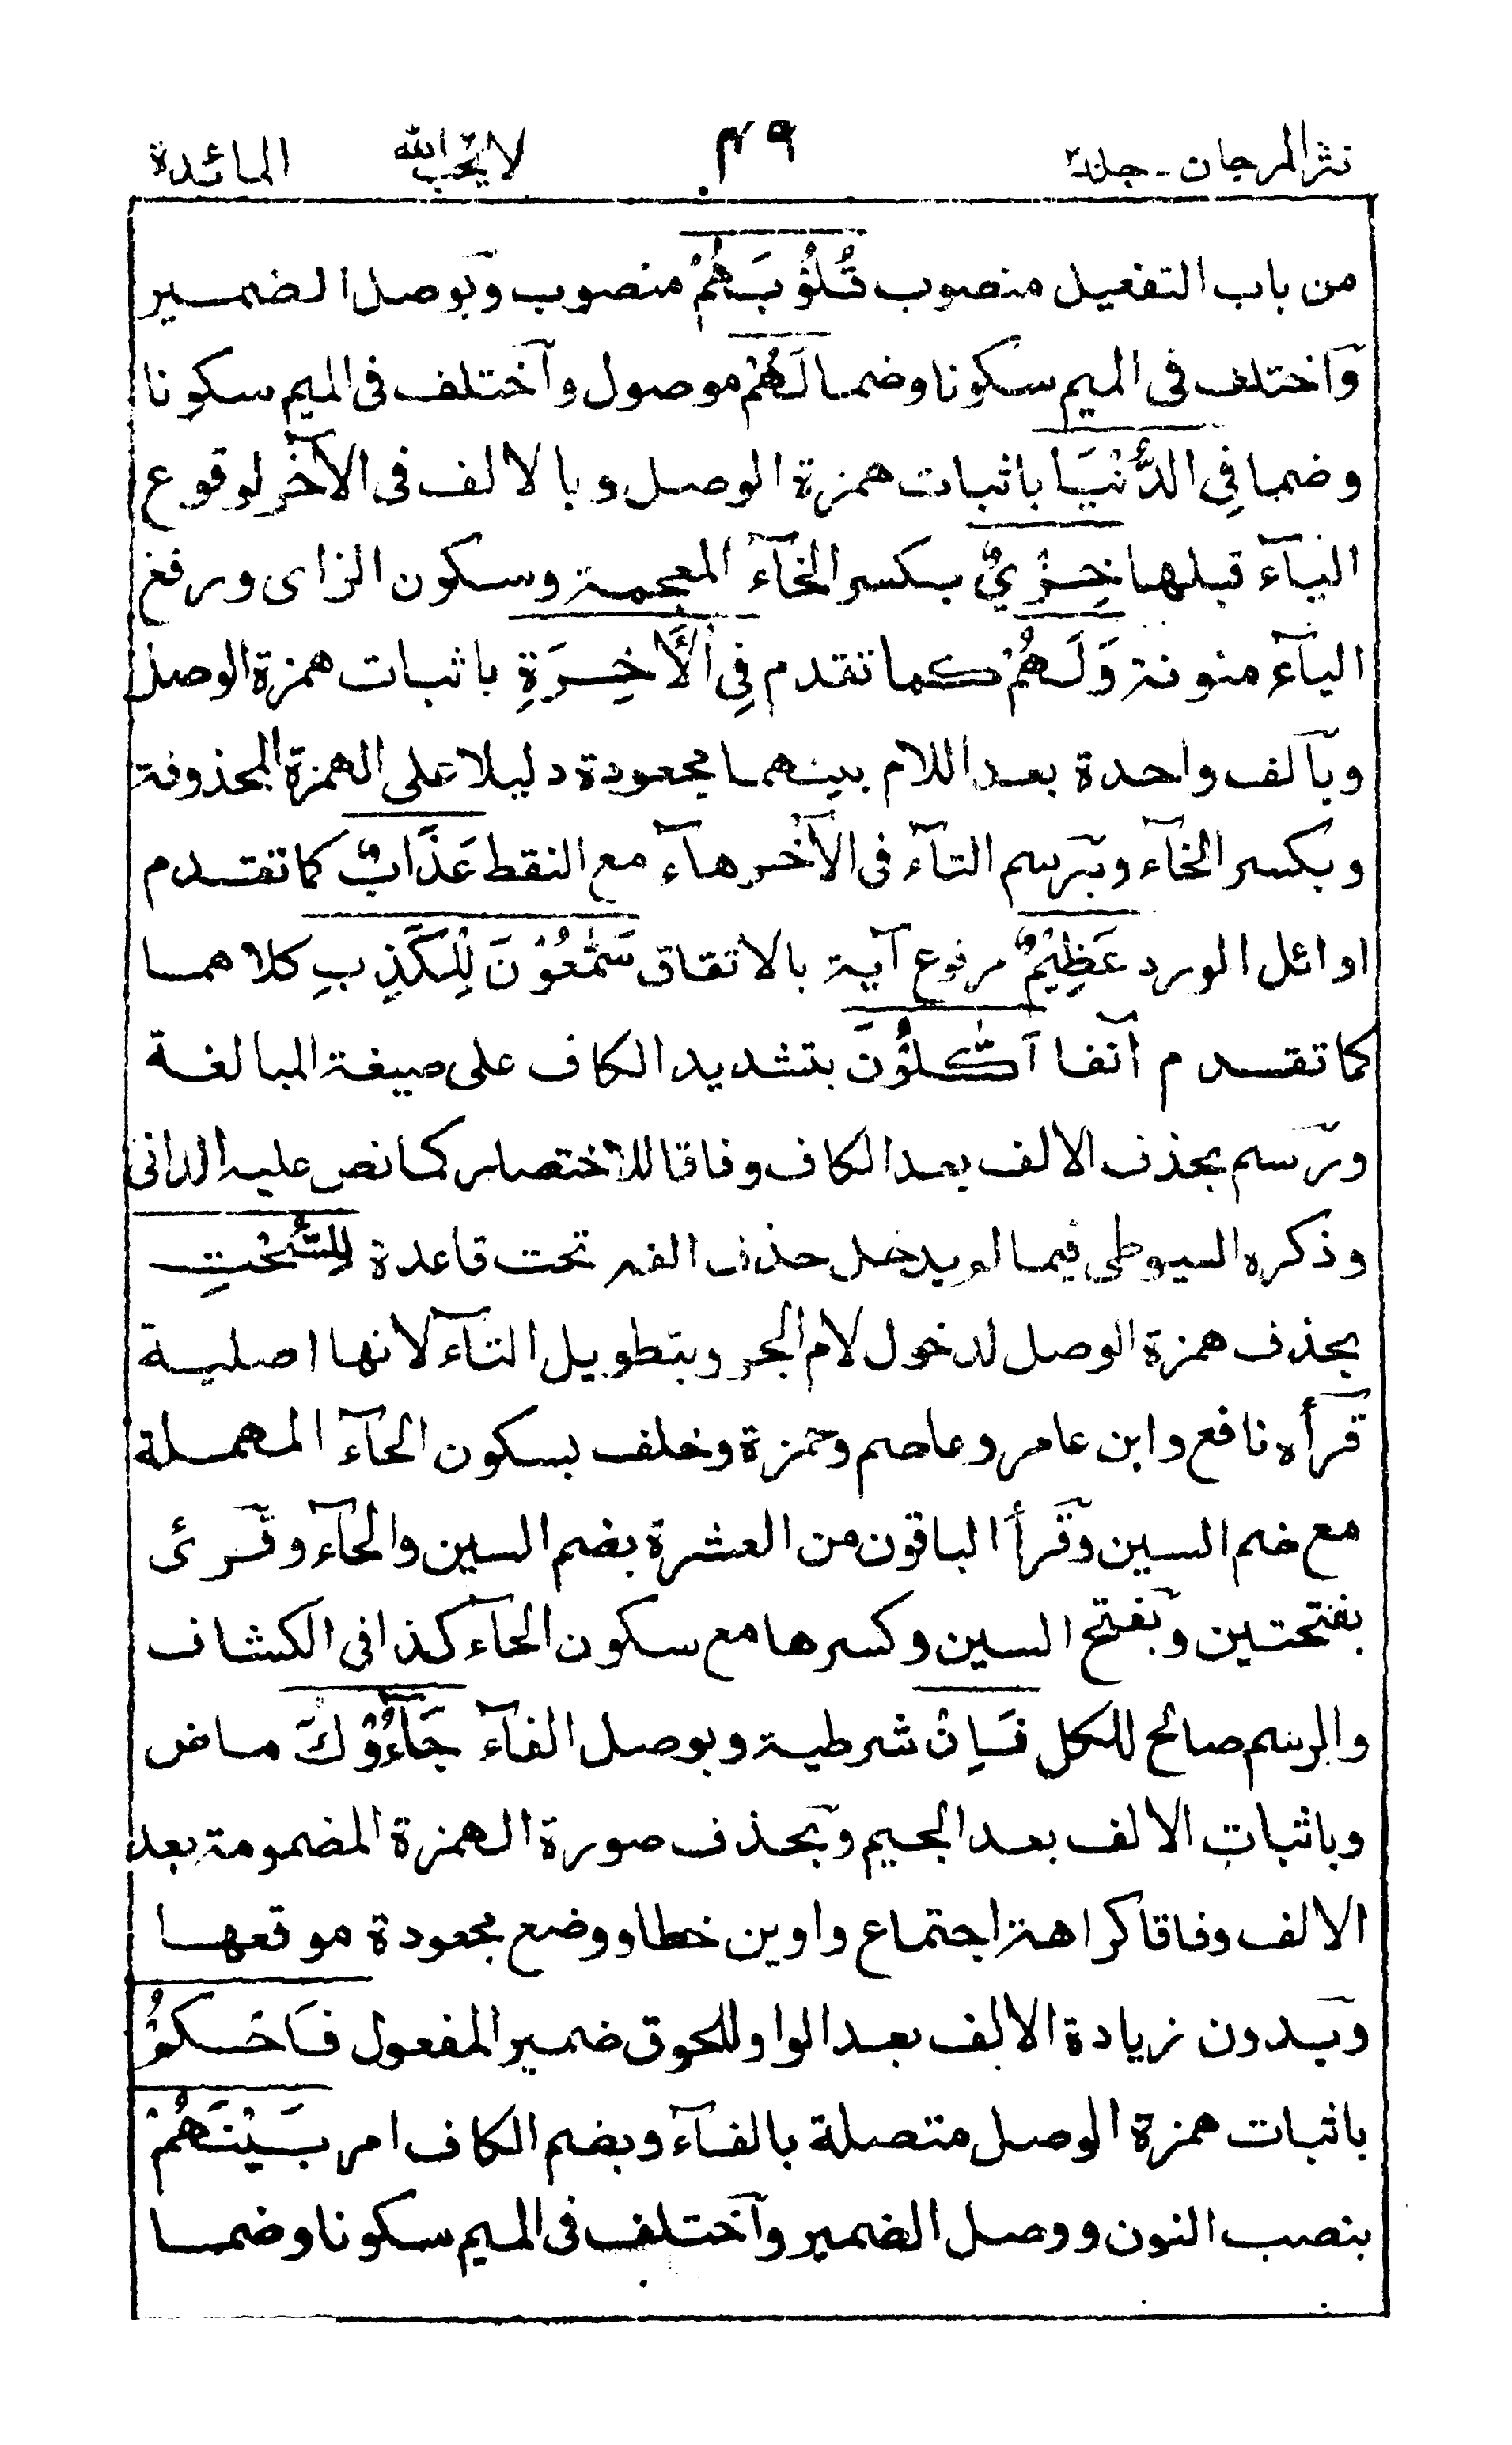 نثر المرجان - جلد٢ ٤٩ لا يحب الله المائدة
من باب التفعيل منصوب قُلُوْبَهُمْ منصوب وبوصل الضمير
وآختلف فى الميم سكونا وضما لَهُمْ موصول وآختلف فى الميم سكونا
وضما فِى الدُّنْيَا باثبات همزة الوصل وبالالف فى الآخر لوقوع
اليآء قبلها خِزْيٌ بكسر الخآء المعجمة وسكون الزاى ورفع
اليآء منونة وَلَهُمْ كما تقدم فِى الْاٰخِرَةِ باثبات همزة الوصل
وبآلف واحدة بعد اللام بينهما مجعودة دليلا على الهمزة المحذوفة
وبكسر الخآء وبرسم التآء فى الآخر هآء مع النقط عَذَابٌ كما تقدم
اوائل الورد عَظِيْمٌ مرفوع آية بالاتفاق سَمّٰعُوْنَ لِلْكَذِبِ كلاهما
كما تقدم آنفا اَكّٰلُوْنَ بتشديد الكاف على صيغة المبالغة
ورسم بحذف الالف بعد الكاف وفاقا للاختصار كما نص عليه الدانى
وذكره السيوطى فيما لم يدخل حذف الفه تحت قاعدة لِلسُّحْتِ
بحذف همزة الوصل لدخول لام الجر وبتطويل التآء لانها اصلية
قرأه نافع وابن عامر وعاصم وحمزة وخلف بسكون الحآء المهملة
مع ضم السين وقرأ الباقون من العشرة بضم السين والحآء وقرئ
بفتحتين وبفتح السين وكسرها مع سكون الحآء كذا فى الكشاف
والرسم صالح للكل فَاِنْ شرطية وبوصل الفآء جَآءُوْكَ ماض
وباثبات الالف بعد الجيم وبحذف صورة الهمزة المضمومة بعد
الالف وفاقا كراهة اجتماع واوين خطا ووضع مجعودة موقعها
وبدون زيادة الالف بعد الواو للحوق ضمير المفعول فَاحْكُمْ
باثبات همزة الوصل متصلة بالفآء وبضم الكاف امر بَيْنَهُمْ
بنصب النون ووصل الضمير وآختلف فى الميم سكونا وضما